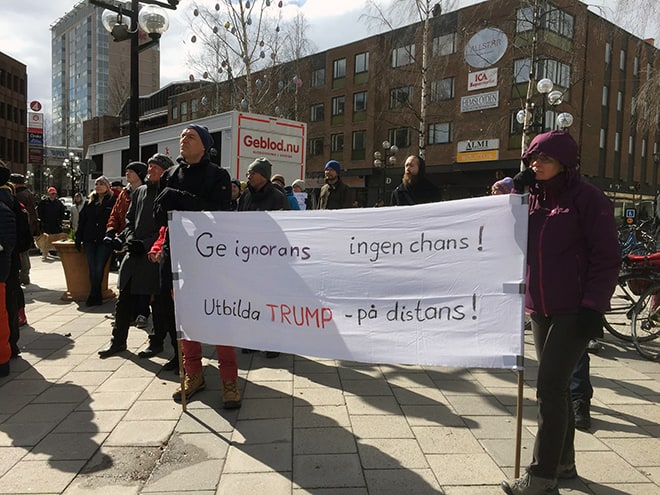 ALLSTÄR
ICA
Geblod.nu
ALMI
Ge ignorans ingen chans!
Utbilda TRUMP - på distans!